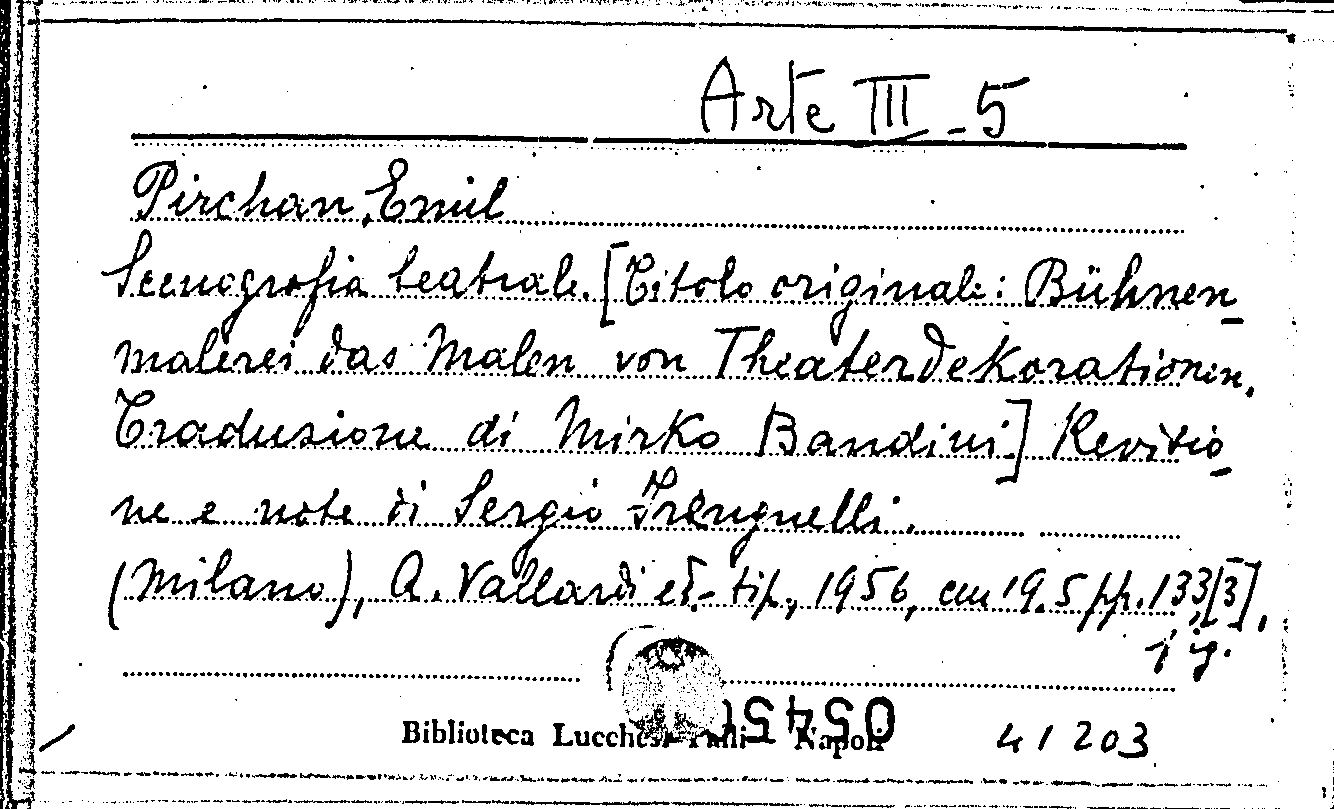 Arte III - 5
Pirchan, Emil
Scenografia teatrale. [Titolo originale: Bühnen-
malerei das Malen von Theaterdekorationen.
Traduzione di Mirko Bandini.] Revisio-
ne e note di Sergio
(Milano), A. Vallardi ed.-tip., 1956, cm 19.5 pp. 133, [3],
fig.
Biblioteca Lucchesi Palli - Napoli
41203